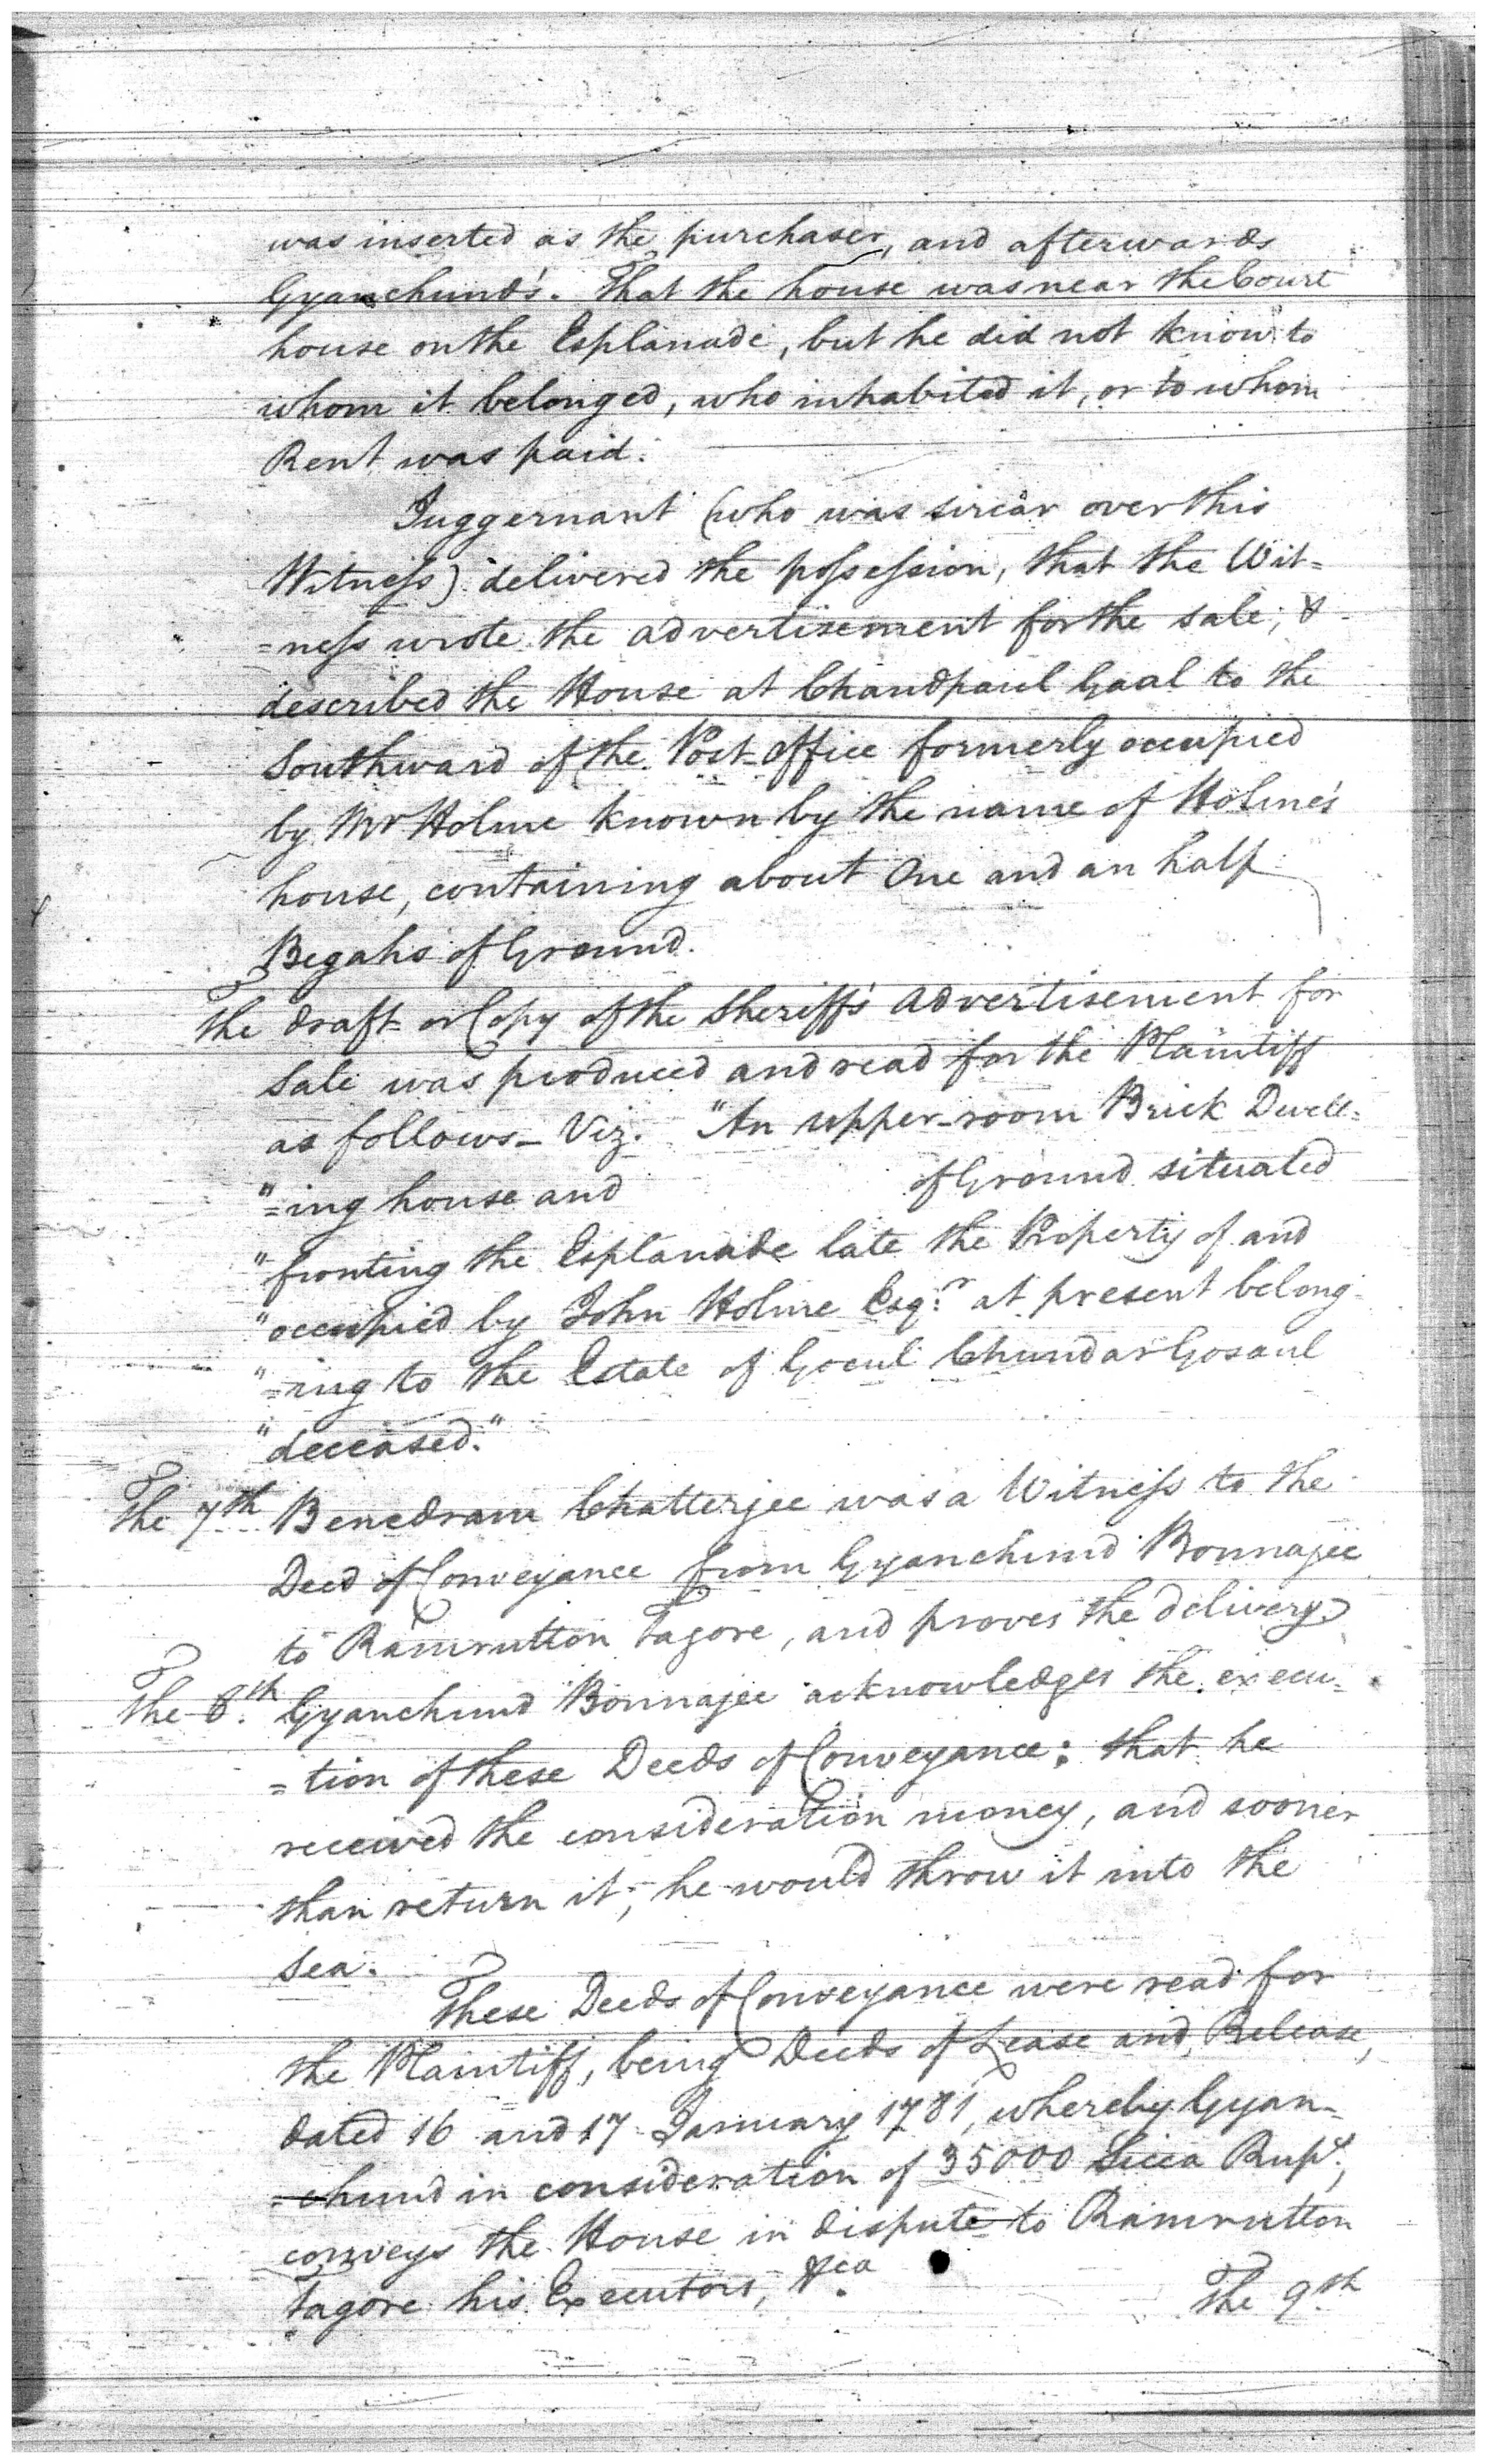 was inserted as the purchaser, and afterwards
Gyanchund's. That the house was near the Court
house on the Esplanade, but he did not know to
whom it belonged, who inhabited it, or to whom
Rent was paid.
Juggernant (who was sircar over this
Witness) delivered the possession, that the Wit=
=ness wrote the advertisement for the sale, &
described the House at Chandpaul Gaal to the
Southward of the Post-Office formerly occupied
by Mr Holme known by the name of Holme's
house, containing about One and an half
Begahs of Ground.
The draft or Copy of the Sheriff's advertisement for
Sale was produced and read for the Plaintiff
as follows - Viz. "An upper-room Brick Dwell=
"=ing house and of Ground situated
"fronting the Esplanade late the Property of and
"occupied by John Holme Esqr. at present belong-
"=ing to the Estate of Gocul Chundar Gosaul
"deceased."
The 7th Benedram Chatterjee was a Witness to the
Deed of Conveyance from Gyanchund Bonnajee
to Ramrutton Tagore, and proves the delivery.
The 8th. Gyanchund Bonnajee acknowledges the execu=
=tion of these Deeds of Conveyance; that he
received the consideration money, and sooner
than return it, he would throw it into the
Sea.
These Deeds of Conveyance were read for
the Plaintiff, being Deeds of Lease and Release,
dated 16 and 17 January 1781, whereby Gyan=
=chund in consideration of 35000 Sicca Rups.,
conveys the House in dispute to Ramrutton
Tagore his Executors, &ca.
The 9th